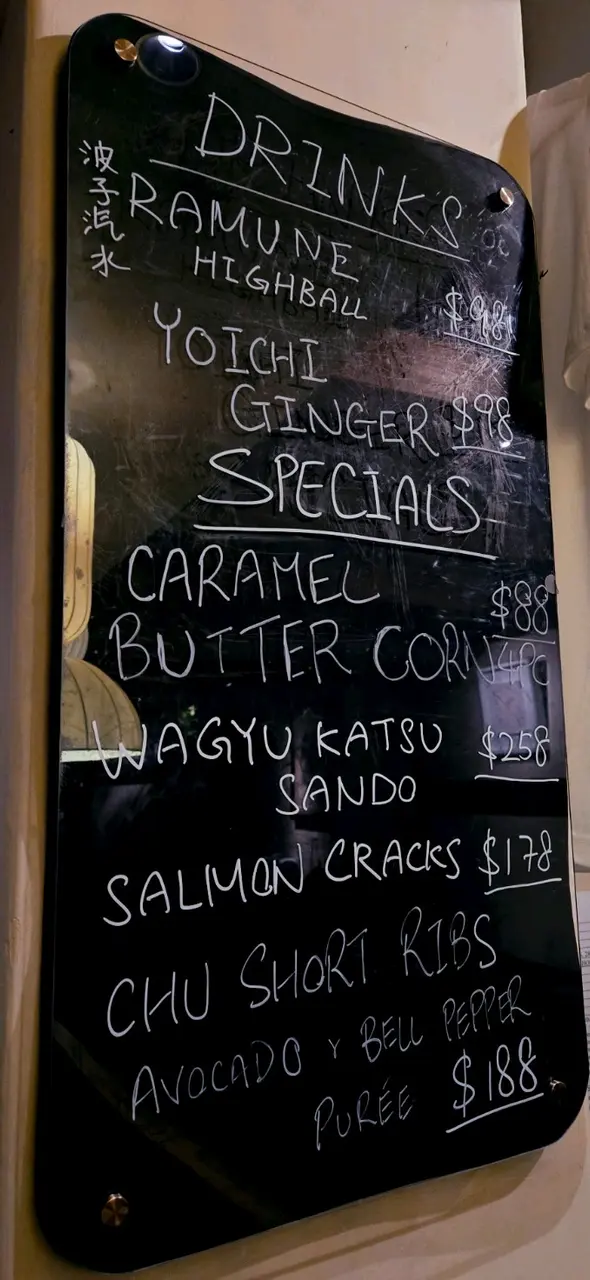 DRINKS
波子汽水
RAMUNE
HIGHBALL $98
YOICHI
GINGER $98
SPECIALS
CARAMEL $88
BUTTER CORN 4PC
WAGYU KATSU $258
SANDO
SALMON CRACKS $178
CHU SHORT RIBS
AVOCADO Y BELL PEPPER
PURÉE $188